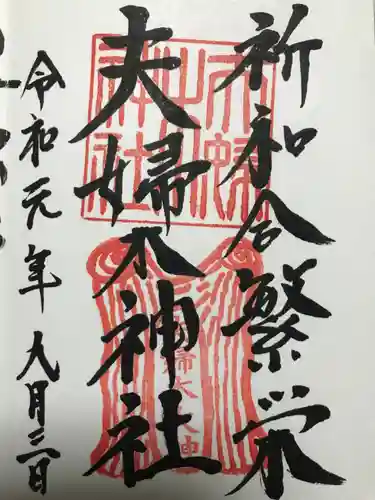 祈和合繁栄
夫婦木神社
令和元年九月三日